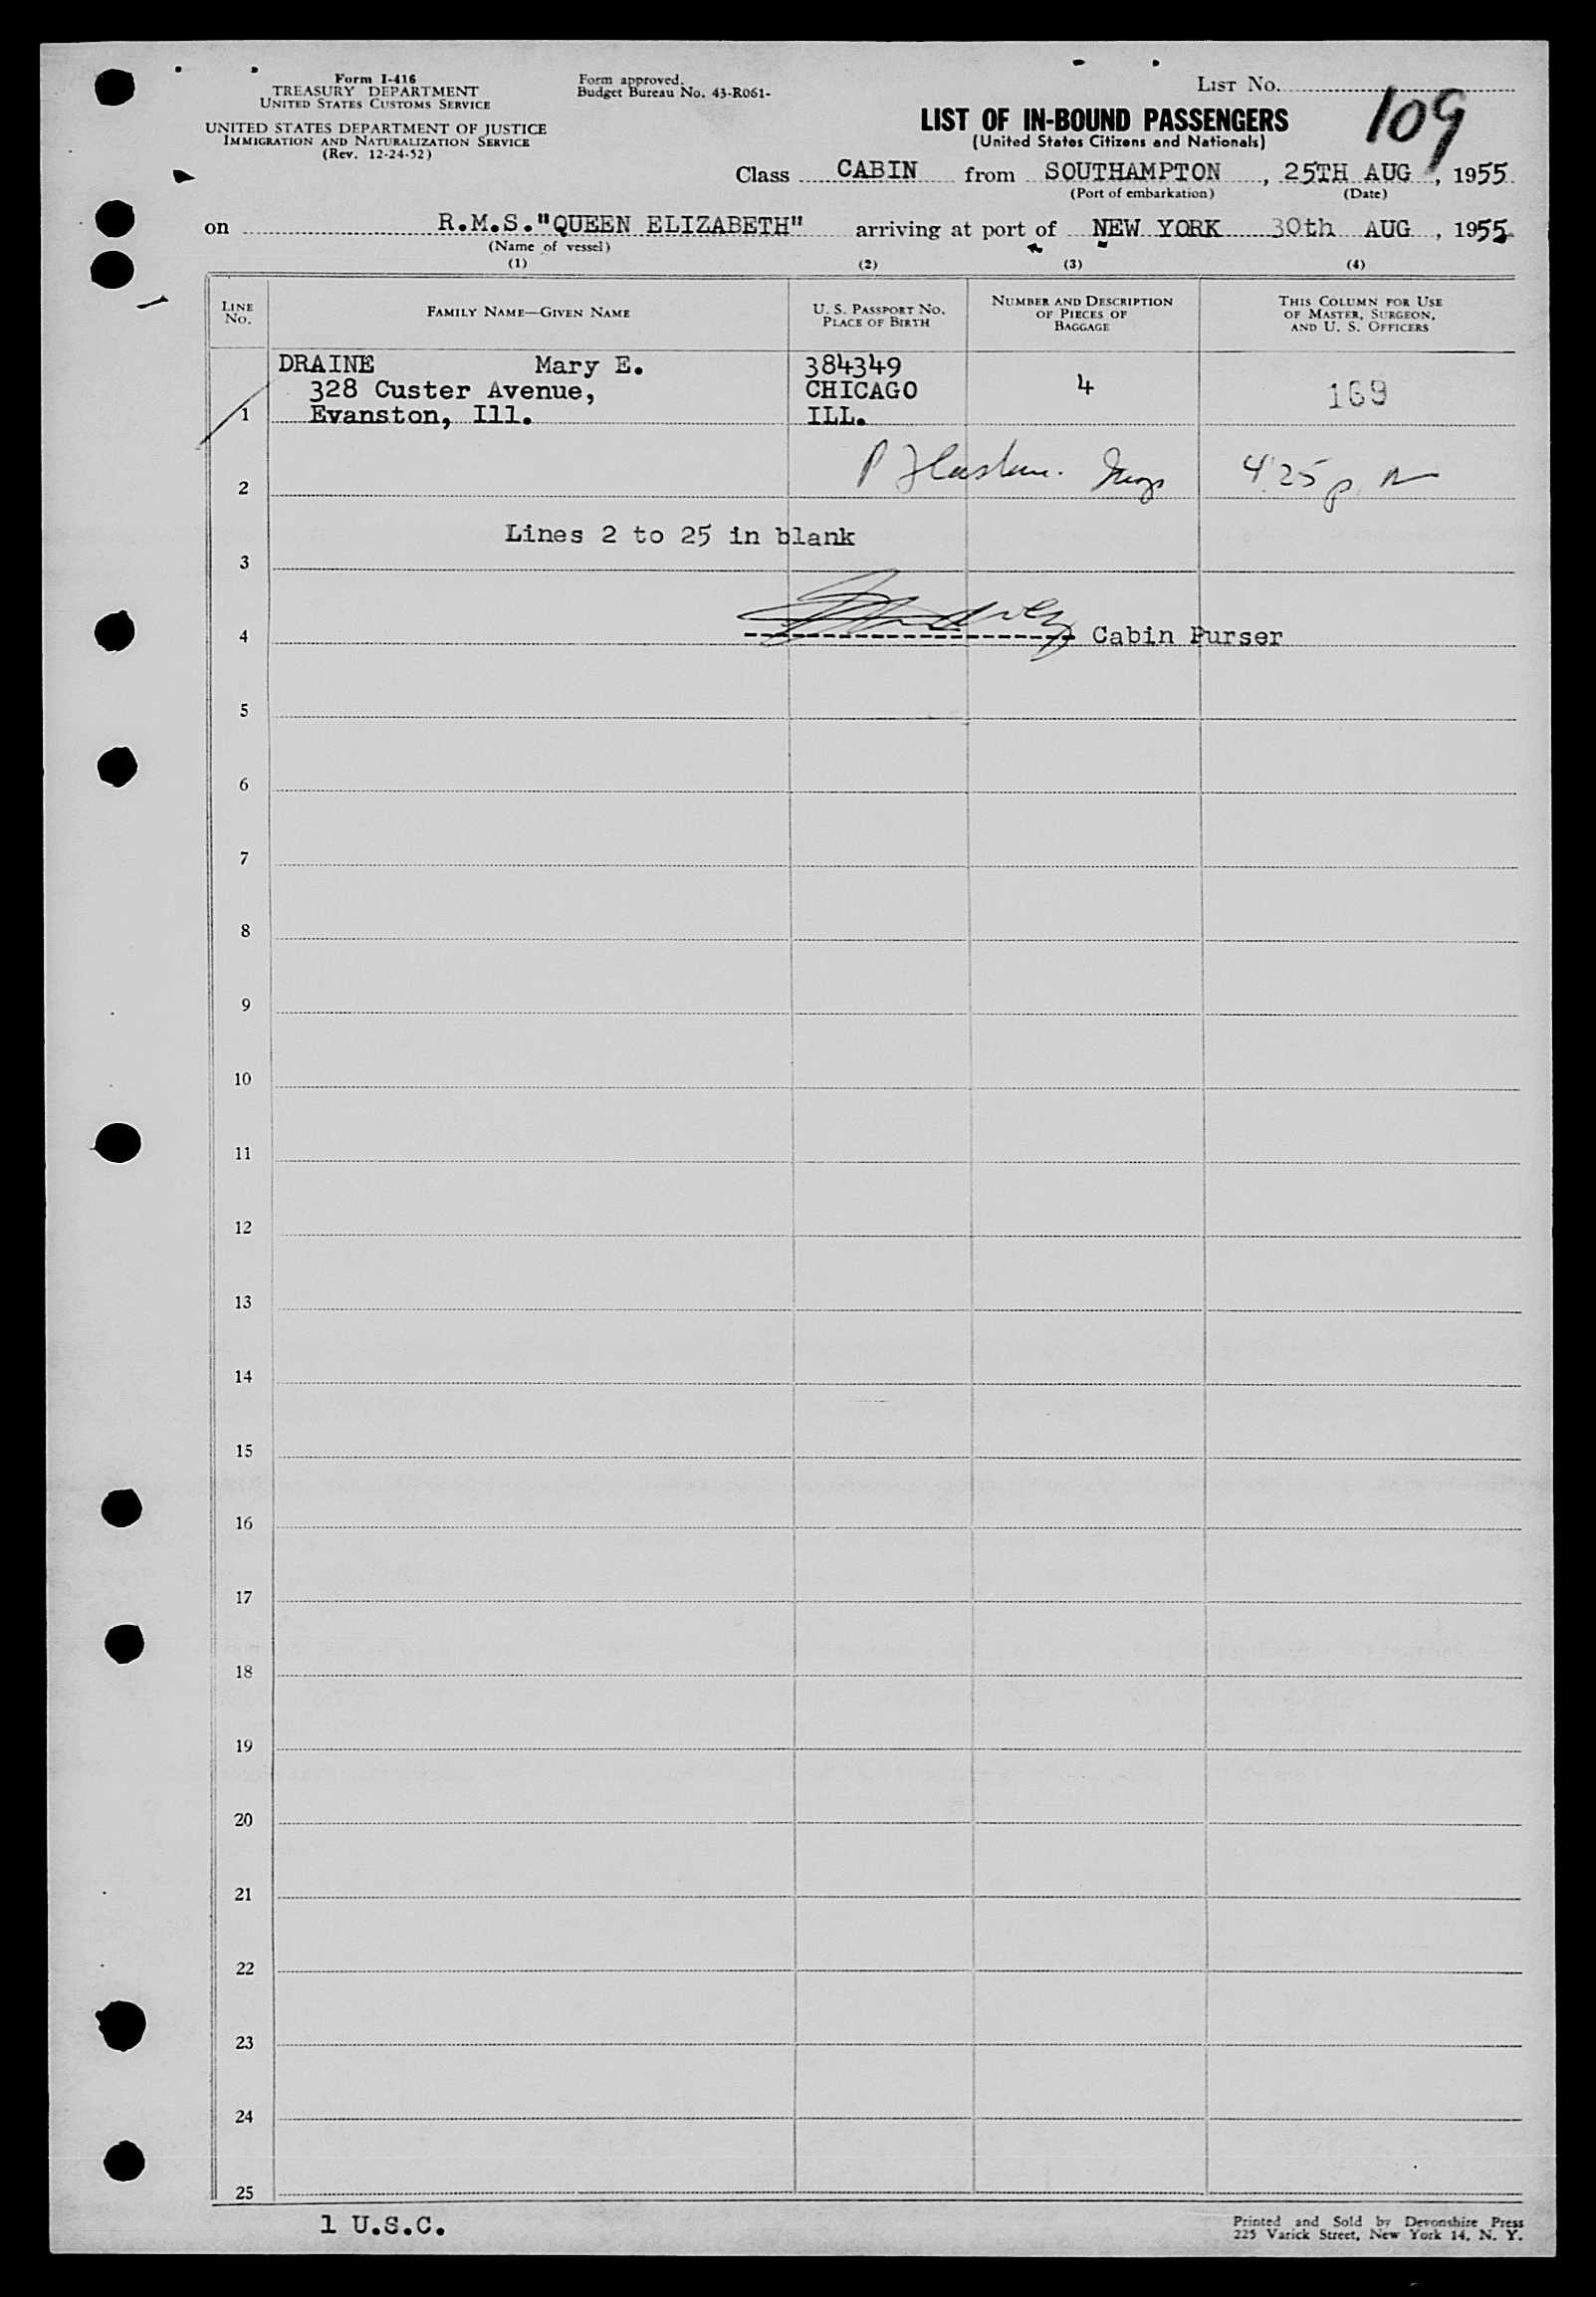 Form I-416
TREASURY DEPARTMENT
UNITED STATES CUSTOMS SERVICE
UNITED STATES DEPARTMENT OF JUSTICE
IMMIGRATION AND NATURALIZATION SERVICE
(Rev. 12-24-52)
Form approved.
Budget Bureau No. 43-R061-
LIST NO.
109
LIST OF IN-BOUND PASSENGERS
(United States Citizens and Nationals)
Class CABIN from SOUTHAMPTON, 25TH AUG, 1955
(Port of embarkation) (Date)
on R.M.S."QUEEN ELIZABETH" arriving at port of NEW YORK 30th AUG, 1955
(Name of vessel)
(1) (2) (3) (4)
LINE NO.
FAMILY NAME—GIVEN NAME
U. S. PASSPORT NO.
PLACE OF BIRTH
NUMBER AND DESCRIPTION
OF PIECES OF
BAGGAGE
THIS COLUMN FOR USE
OF MASTER, SURGEON,
AND U. S. OFFICERS
DRAINE Mary E. 384349
328 Custer Avenue, CHICAGO 4 169
1 Evanston, Ill. ILL.
2 4.25 p.m
Lines 2 to 25 in blank
3
4 Cabin Purser
5
6
7
8
9
10
11
12
13
14
15
16
17
18
19
20
21
22
23
24
25
1 U.S.C.
Printed and Sold by Devonshire Press
225 Varick Street, New York 14, N. Y.